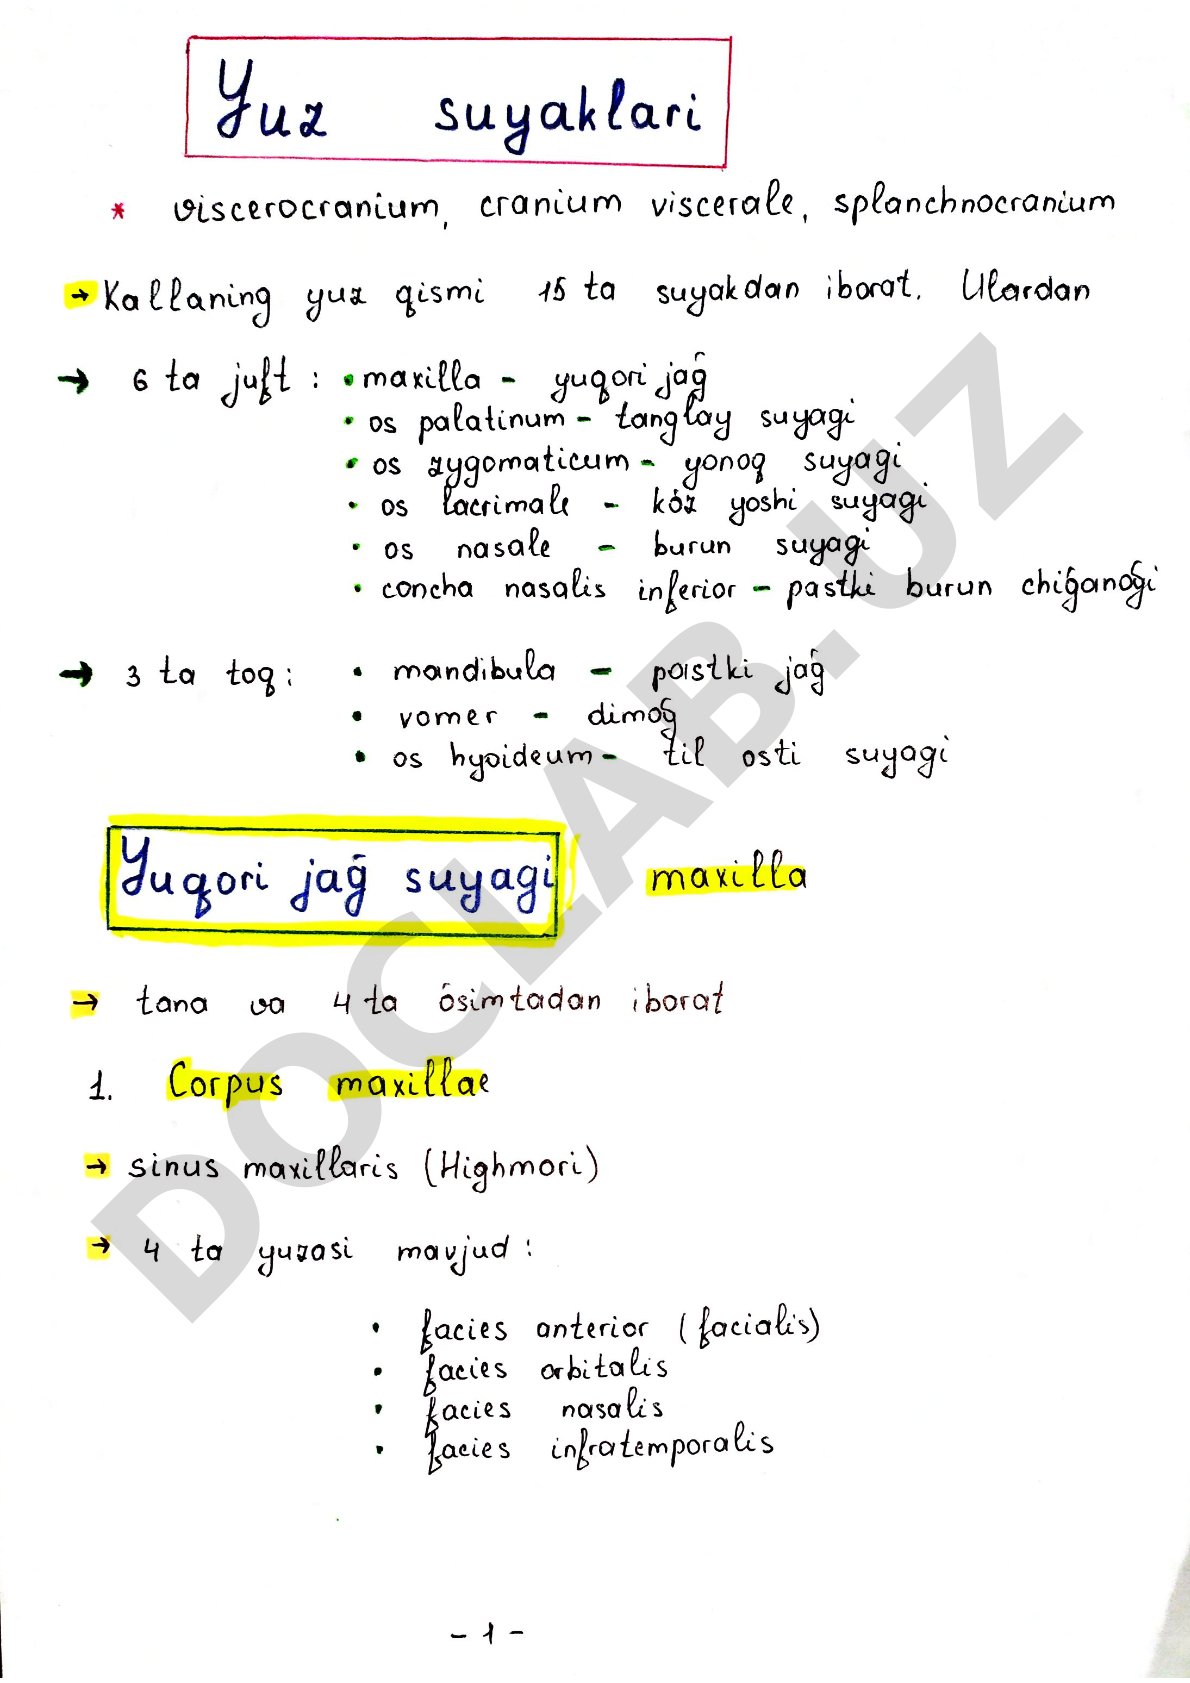 Yuz suyaklari
* viscerocranium, cranium viscerale, splanchnocranium
→ Kallaning yuz qismi 15 ta suyakdan iborat. Ulardan
→ 6 ta juft : • maxilla - yuqori jag̑
• os palatinum - tanglay suyagi
• os zygomaticum - yonoq suyagi
• os lacrimale - kóz yoshi suyagi
• os nasale - burun suyagi
• concha nasalis inferior - pastki burun chig̑anog̑i
→ 3 ta toq : • mandibula - pastki jag̑
• vomer - dimog̑
• os hyoideum - til osti suyagi
Yuqori jag̑ suyagi maxilla
→ tana va 4 ta ósimtadan iborat
1. Corpus maxillae
→ sinus maxillaris (Highmori)
→ 4 ta yuzasi mavjud :
• facies anterior (facialis)
• facies orbitalis
• facies nasalis
• facies infratemporalis
- 1 -
DOCLAB.UZ